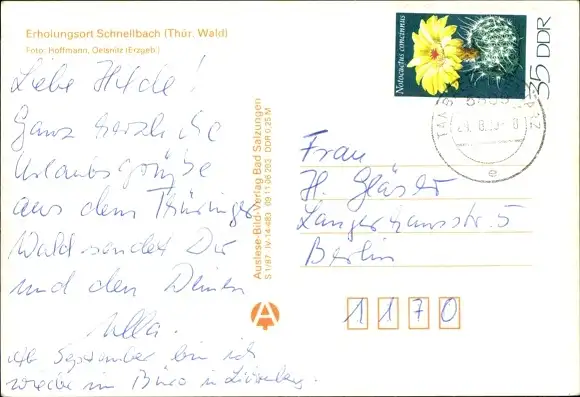 Erholungsort Schnellbach (Thür. Wald)
Foto: Hoffmann, Oelsnitz (Erzgeb.)
Liebe Hilde!
Ganz herzliche
Urlaubsgrüße
aus dem Thüringer
Wald sendet Dir
und den Deinen
Ulla.
Ab September bin ich
wieder im Büro in
Auslese-Bild-Verlag Bad Salzungen
S 1/87 IV-14-483 09 11 06 202 DDR 0,25 M
A
Notocactus concinnus
35 DDR
Frau
H. Gläser
Langerhansstr. 5
Berlin
1170